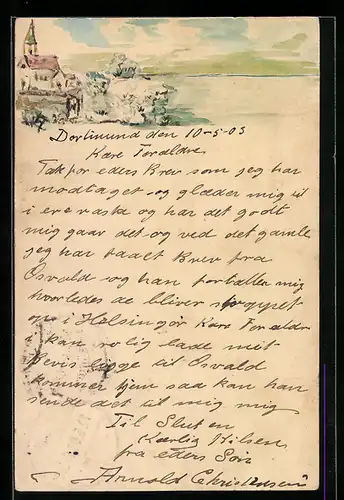 Dortmund den 10-5-03
Kære Forældre
Tak for eders Brev som jeg har
modtaget og glæder mig til
i ere raske og har det godt
mig gaar det og ved det gamle
jeg har faaet Brev fra
Osvald og han fortæller mig
hvorledes de bliver stoppet
op i Helsingør Kære Forældre
i kan rolig lade mit
bevis ligge til Osvald
kommer hjem saa kan han
sende det til mig mig
Til Slut en
Kærlig Hilsen
fra eders Søn
Arnold Christensen